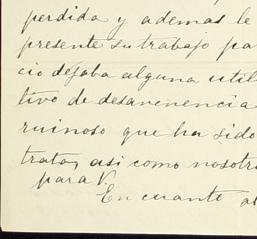 perdida y ademas le
presente su trabajo pa
cio dejaba alguna util
tivo de desavenencia
ruinoso que ha sido
trato, asi como nosotr
para V.
En cuanto al